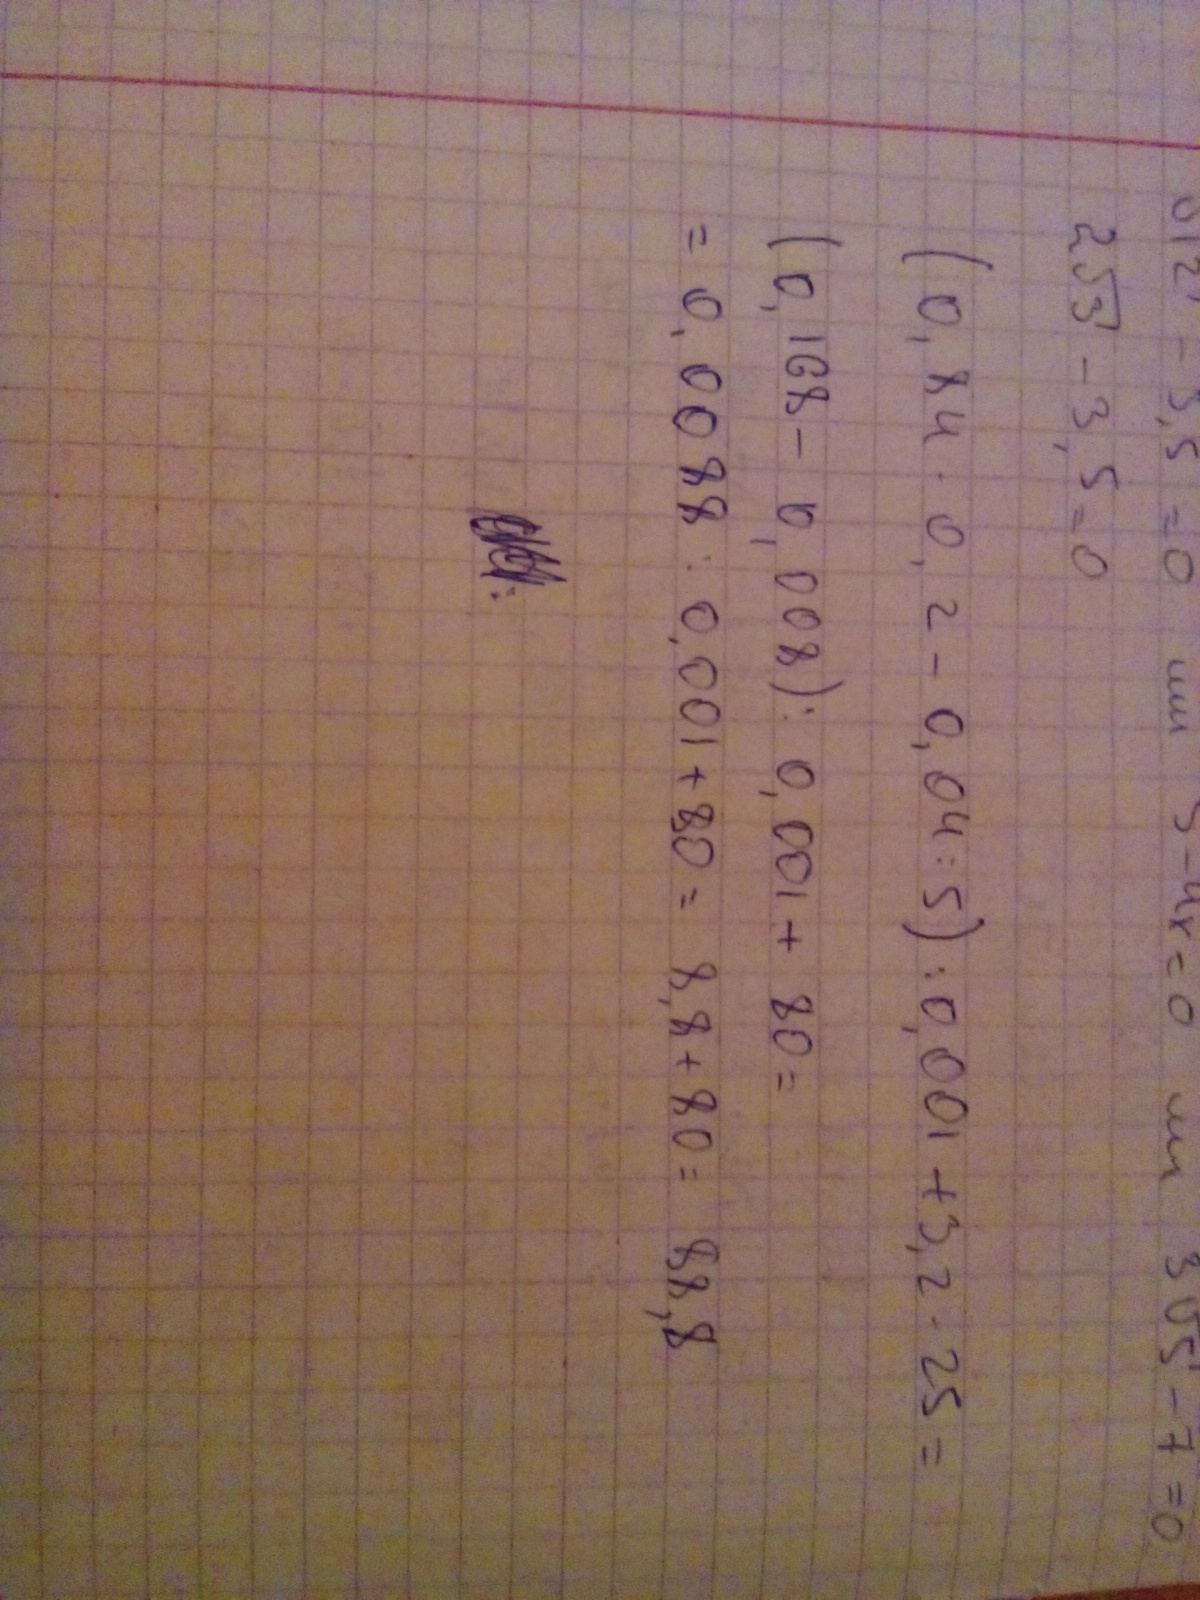 - 3,5 = 0 или 5 - 4x = 0 или 3√5 - 7 = 0
2√3 - 3,5 = 0
(0,84 · 0,2 - 0,04 : 5) : 0,001 + 3,2 · 25 =
(0,168 - 0,008) : 0,001 + 80 =
= 0,0088 : 0,001 + 80 = 8,8 + 80 = 88,8